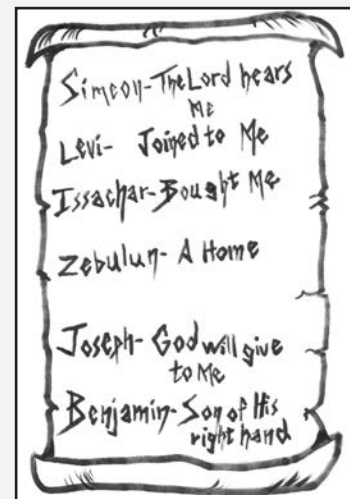 Simeon-The Lord hears
Me
Levi- Joined to Me
Issachar-Bought Me
Zebulun- A Home
Joseph- God will give
to Me
Benjamin-Son of His
right hand